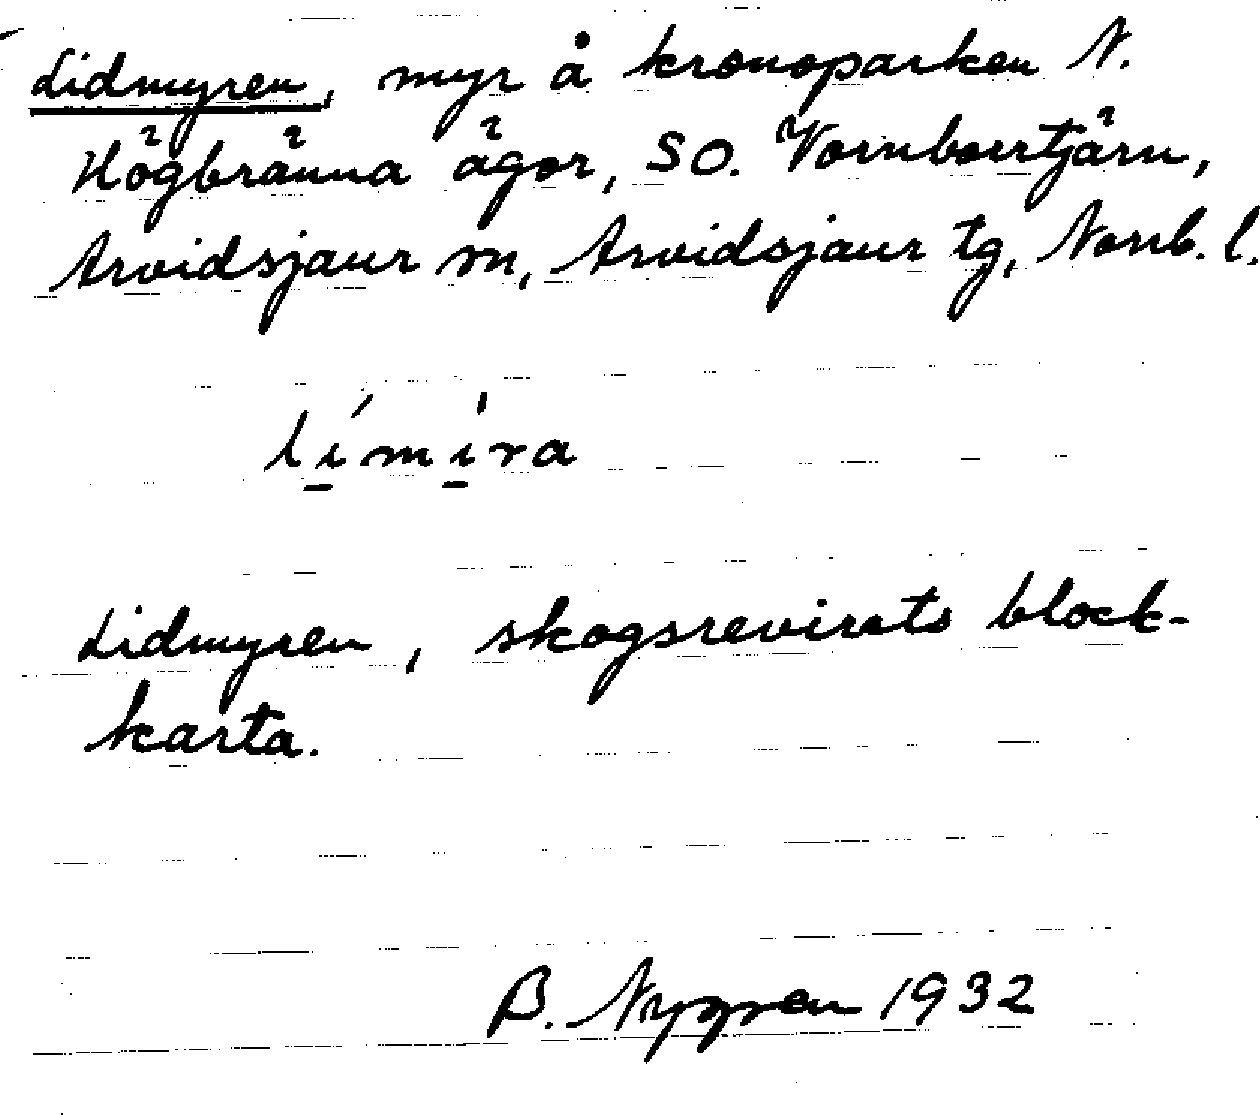 Lidmyren, myr å kronoparken N.
Högbränna ägor, SO. Vornborrtjärn,
Arvidsjaur sn, Arvidsjaur tg, Norrb. l.
límira
Lidmyren, skogsrevirets block-
karta.
B. Nygren 1932